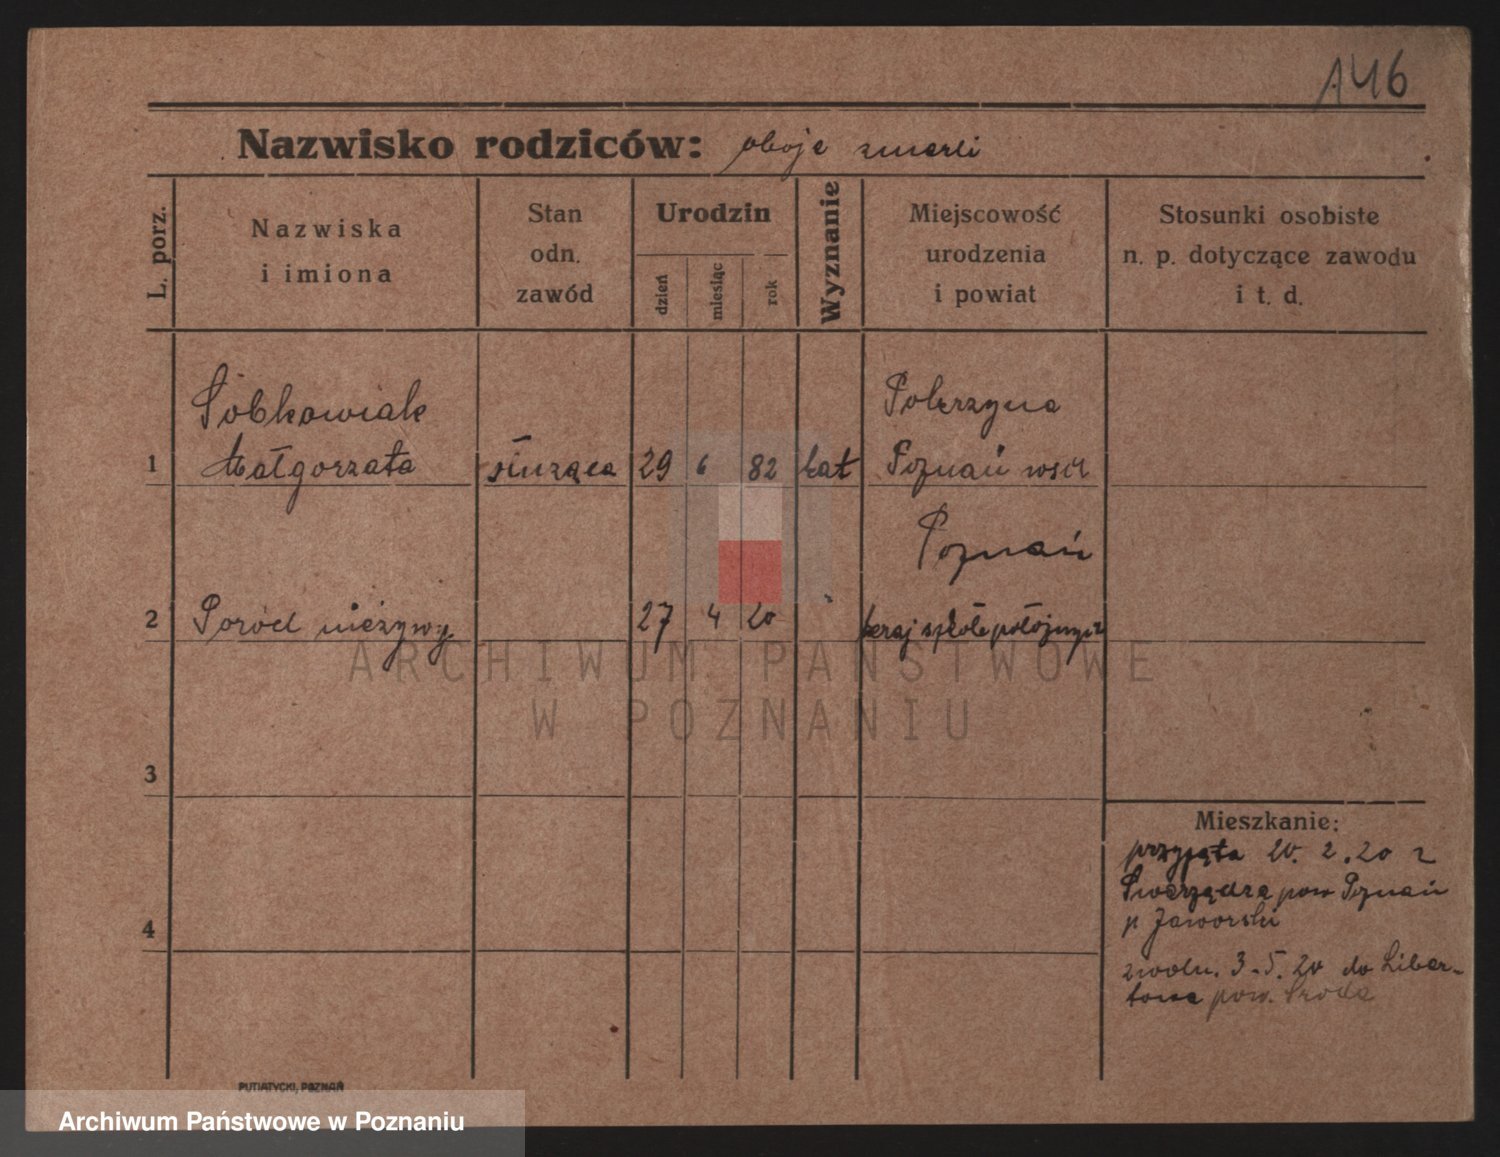 A46
Nazwisko rodziców: oboje zmarli
L. porz.
Nazwiska
i imiona
Stan
odn.
zawód
Urodzin
dzień
miesiąc
rok
Wyznanie
Miejscowość
urodzenia
i powiat
Stosunki osobiste
n. p. dotyczące zawodu
i t. d.
Sobkowiak Pokrzywna
1 Małgorzata służąca 29 6 82 kat Poznań wsch
Poznań
2 Poród nieżywy 27 4 20 " kraj szkole położnych
3
4
Mieszkanie:
przyjęta 20. 2. 20 z
Swarzędza pow Poznań
p Jaworski
zwoln. 3. 5. 20 do Liber-
towa pow. Środa
PUTIATYCKI, POZNAŃ
ARCHIWUM PAŃSTWOWE
W POZNANIU
Archiwum Państwowe w Poznaniu